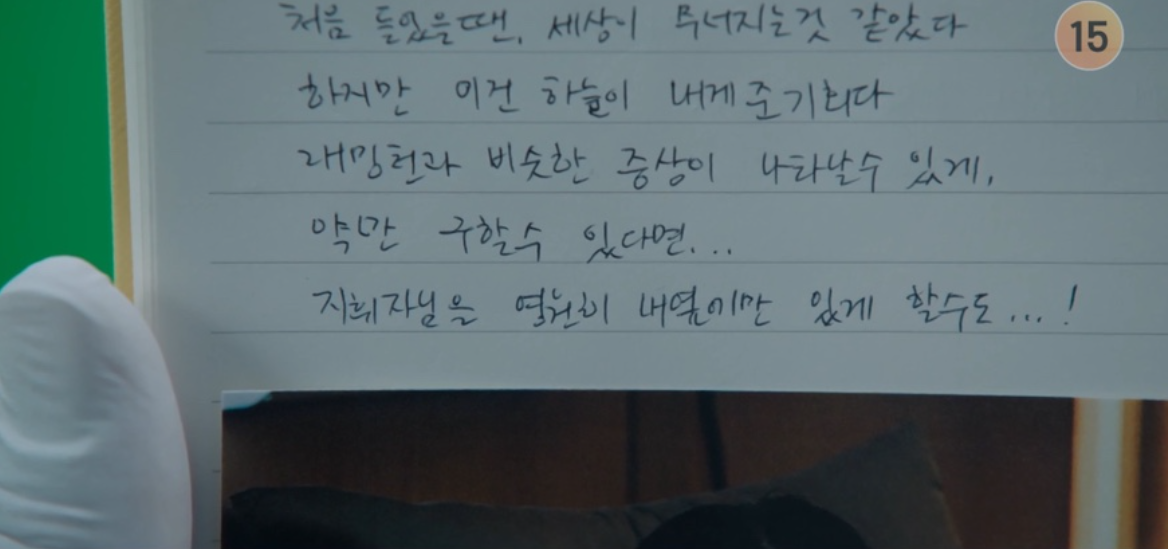 처음 들었을땐, 세상이 무너지는것 같았다
15
하지만 이건 하늘이 내게 준 기회다
래밍턴과 비슷한 증상이 나타날수 있게,
약만 구할수 있다면...
지휘자님을 영원히 내옆에만 있게 할수도...!